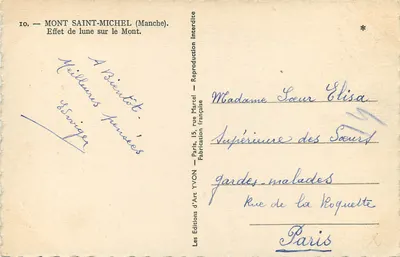 10. — MONT SAINT-MICHEL (Manche).
Effet de lune sur le Mont.
*
A Bientôt.
Meilleures pensées
Les Editions d'Art YVON — Paris, 15, rue Martel — Reproduction Interdite
Fabrication française
Madame Sœur Elisa
Supérieure des Sœurs
gardes-malades
Rue de la Roquette
Paris